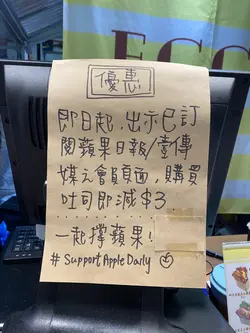 優惠!
即日起,出示已訂
閱蘋果日報/壹傳
媒之會員頁面,購買
吐司即減$3
一起撐蘋果!
#SupportAppleDaily